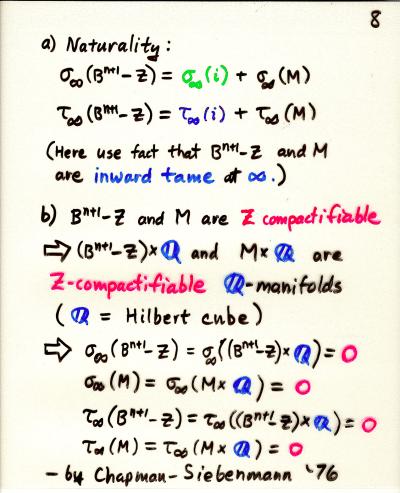 8
a) Naturality:
σ∞(Bⁿ⁺¹-Z) = σ∞(i) + σ∞(M)
τ∞(Bⁿ⁺¹-Z) = τ∞(i) + τ∞(M)
(Here use fact that Bⁿ⁺¹-Z and M
are inward tame at ∞.)
b) Bⁿ⁺¹-Z and M are Z compactifiable
⇒ (Bⁿ⁺¹-Z)×Q and M×Q are
Z-compactifiable Q-manifolds
(Q = Hilbert cube)
⇒ σ∞(Bⁿ⁺¹-Z) = σ∞((Bⁿ⁺¹-Z)×Q) = 0
σ∞(M) = σ∞(M×Q) = 0
τ∞(Bⁿ⁺¹-Z) = τ∞((Bⁿ⁺¹-Z)×Q) = 0
τ∞(M) = τ∞(M×Q) = 0
- by Chapman-Siebenmann '76